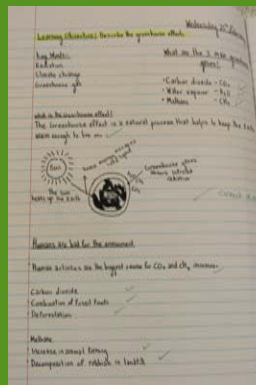 Wednesday
Learning Objective: Describe the greenhouse effect.
Key Words:
Radiation
Climate change
Greenhouse gas
What are the 3 main greenhouse gases?
• Carbon dioxide - CO₂
• Water vapour - H₂O
• Methane - CH₄
What is the greenhouse effect?
The Greenhouse effect is a natural process that helps to keep the Earth
warm enough to live on
Sun
The sun
heats up the Earth
Greenhouse gases
radiation
Humans are bad for the environment
Human activities are the biggest cause for CO₂ and CH₄ increases.
Carbon dioxide
Combustion of fossil fuels
Deforestation
Methane
Increase in animal farming
Decomposition of rubbish in landfill